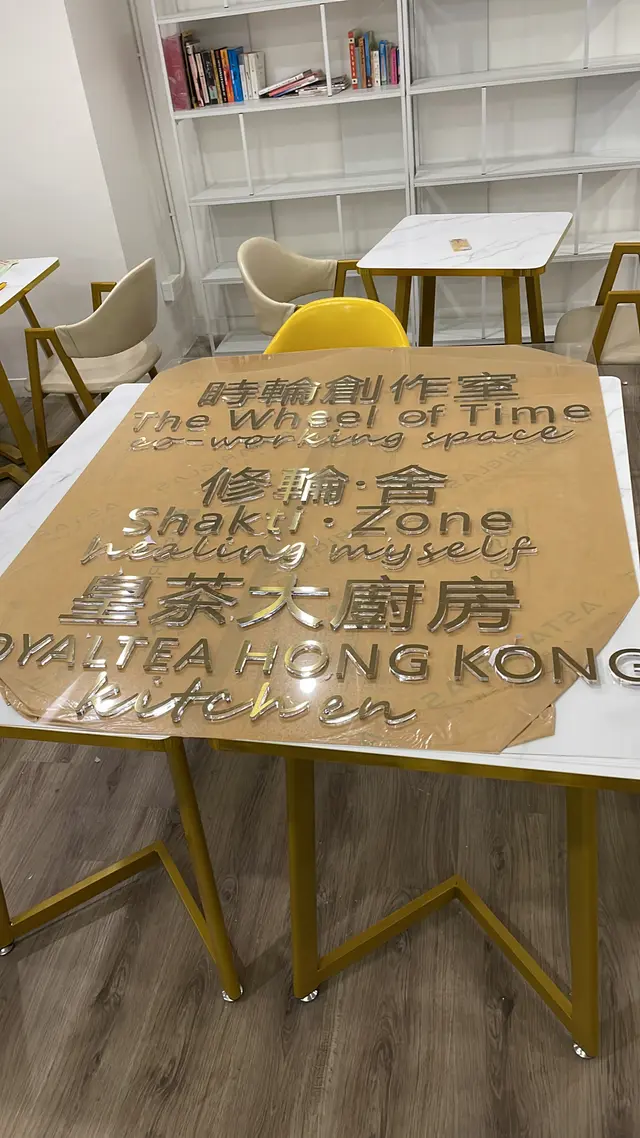 時輪創作室
The Wheel of Time
co-working space
修輪·舍
Shakti · Zone
healing myself
皇茶大廚房
OYALTEA HONG KONG
kitchen